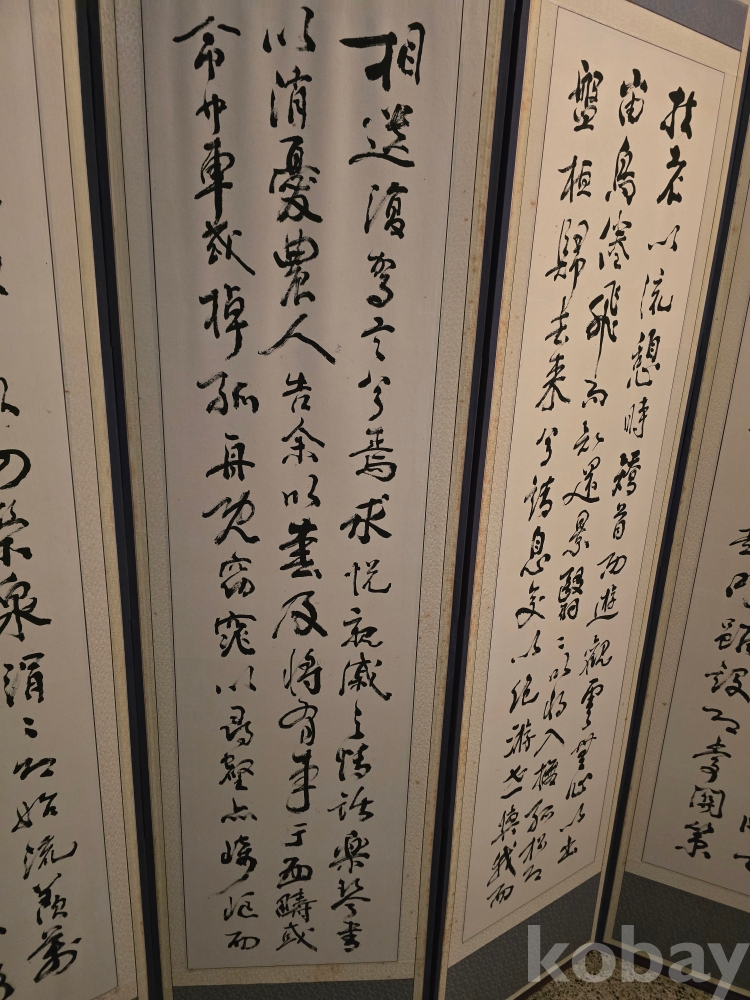 門雖設而常關策
扶老以流憩時矯首而遊觀雲無心以出
岫鳥倦飛而知還景翳〻以將入撫孤松而
盤桓歸去来兮請息交以絕游世與我而
相違復駕言兮焉求悅親戚之情話樂琴書
以消憂農人告余以春及將有事于西疇或
命巾車或棹孤舟既窈窕以尋壑亦崎嶇而
以向榮泉涓〻而始流羨萬
kobay